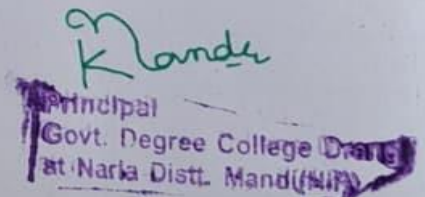 Principal
Govt. Degree College Drang
at Narla Distt. Mandi (H.P.)